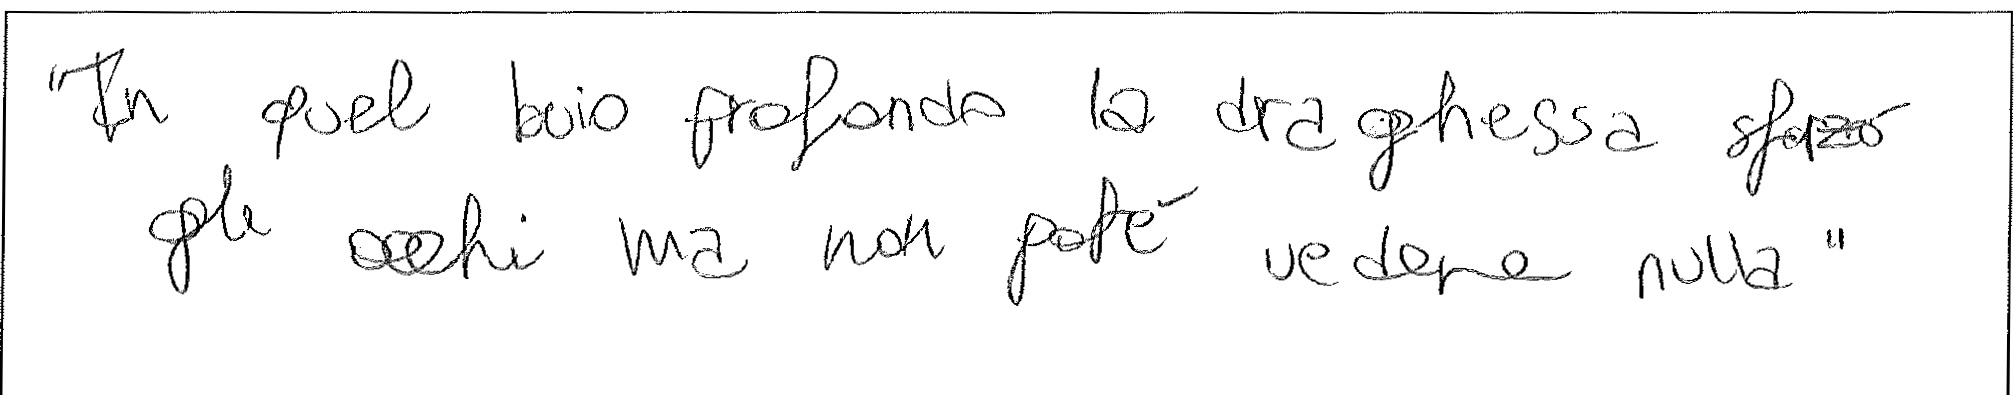 "In quel buio profondo la draghessa sforzò
gli occhi ma non poté vedere nulla"